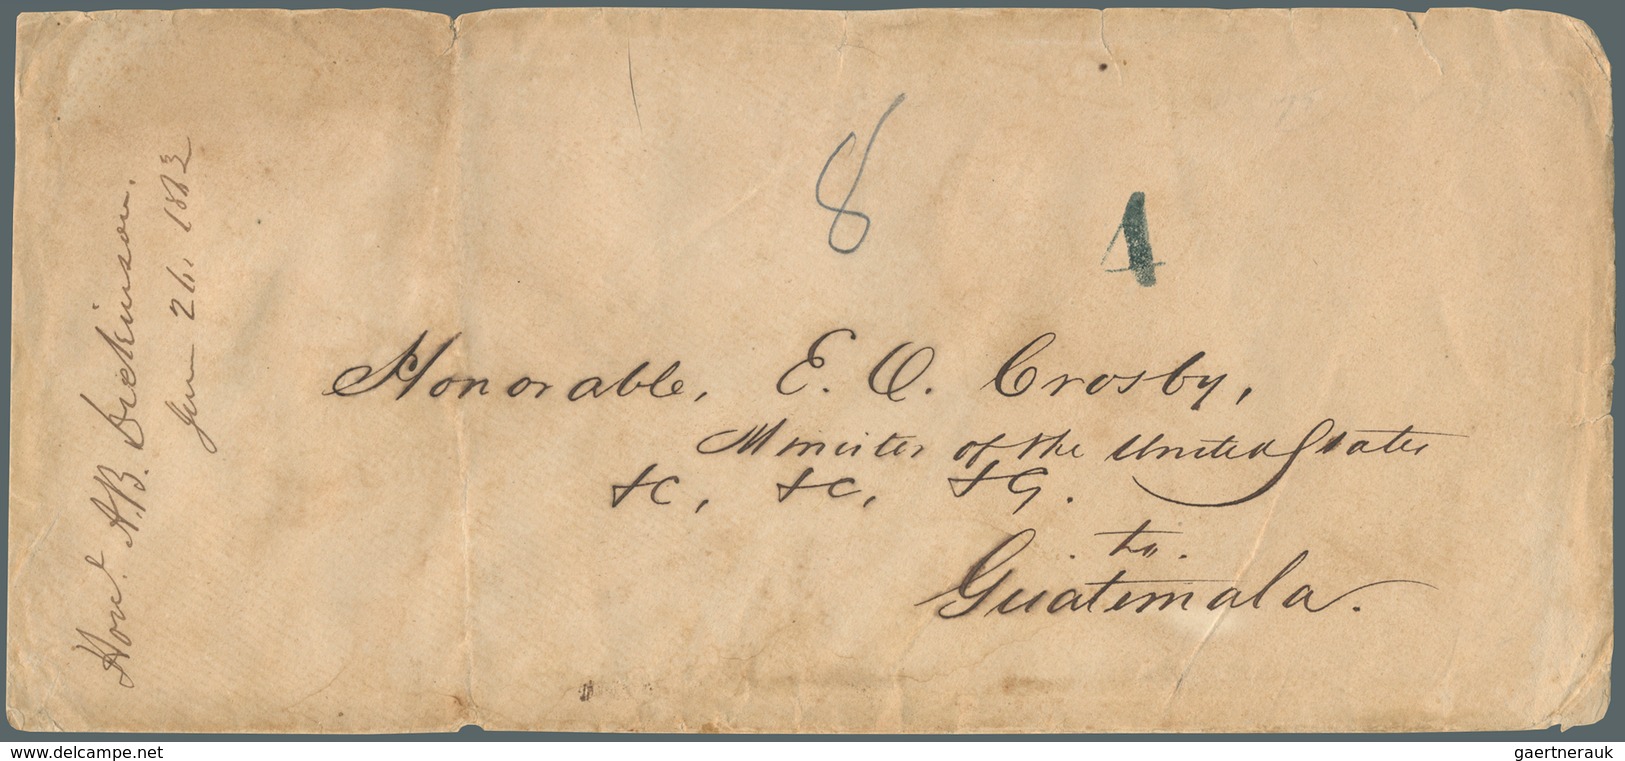 Hon. A. B. Dickinson.
Jan 26. 1863
8
1
Honorable, E. O. Crosby,
Minister of the United States
&C, &C, &C.
to.
Guatemala.
www.delcampe.net
gaertnerauk